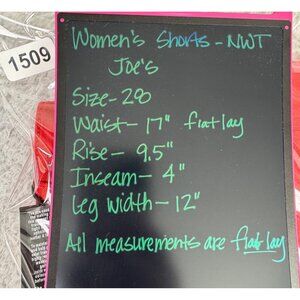 1509
Women's Shorts - NWT
Joe's
Size - 28
Waist - 17" flat lay
Rise - 9.5"
Inseam - 4"
Leg Width - 12"
All measurements are flat lay